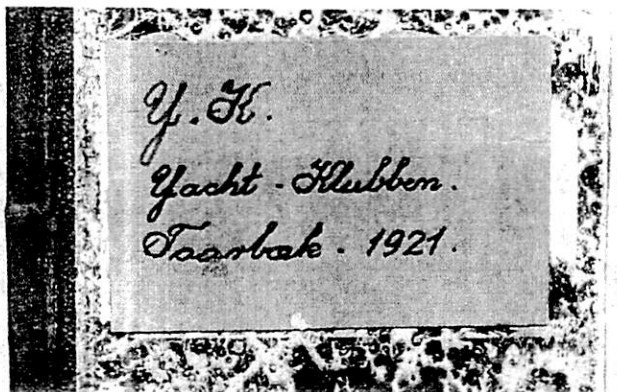 Y. K.
Yacht - Klubben.
Taarbæk - 1921.